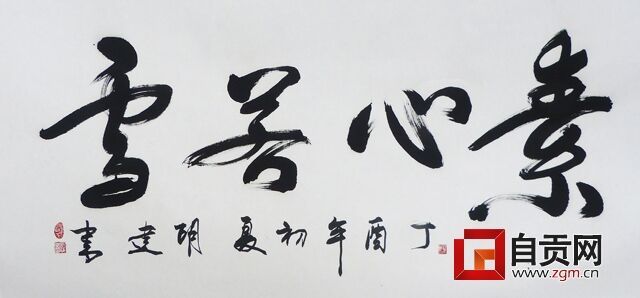 素心若雪
丁酉年初夏 明建书
自贡网
www.zgm.cn